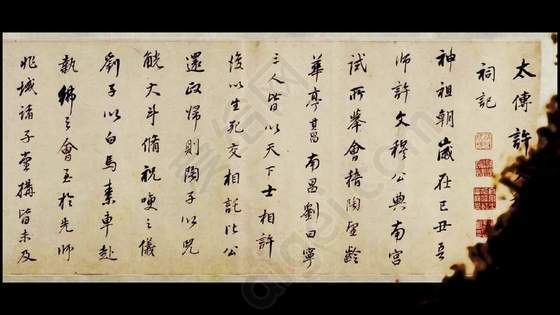 太傅許
祠記
神祖朝歲在己丑吾
師許文穆公典南宮
試所舉會稽陶望齡
華亭董其昌南昌劉曰寧
三人皆以天下士相許
復以生死交相託比公
還政歸則陶子以兕
觥大斗脩祝哽之儀
劉子以白馬素車赴
執紼之會至於先師
兆域諸子堂搆皆未及